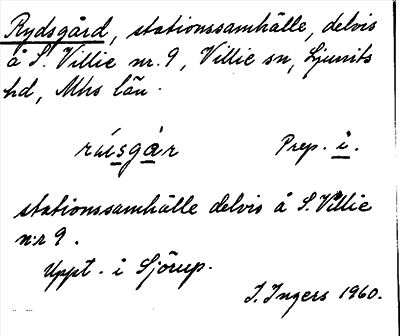 Rydsgård, stationssamhälle, delvis
å S. Villie nr. 9, Villie sn, Ljunits
hd, Mhs län.
ráisgår Prep. i.
stationssamhälle delvis å S. Villie
n:r 9.
Uppt. i Sjörup.
I. Ingers 1960.